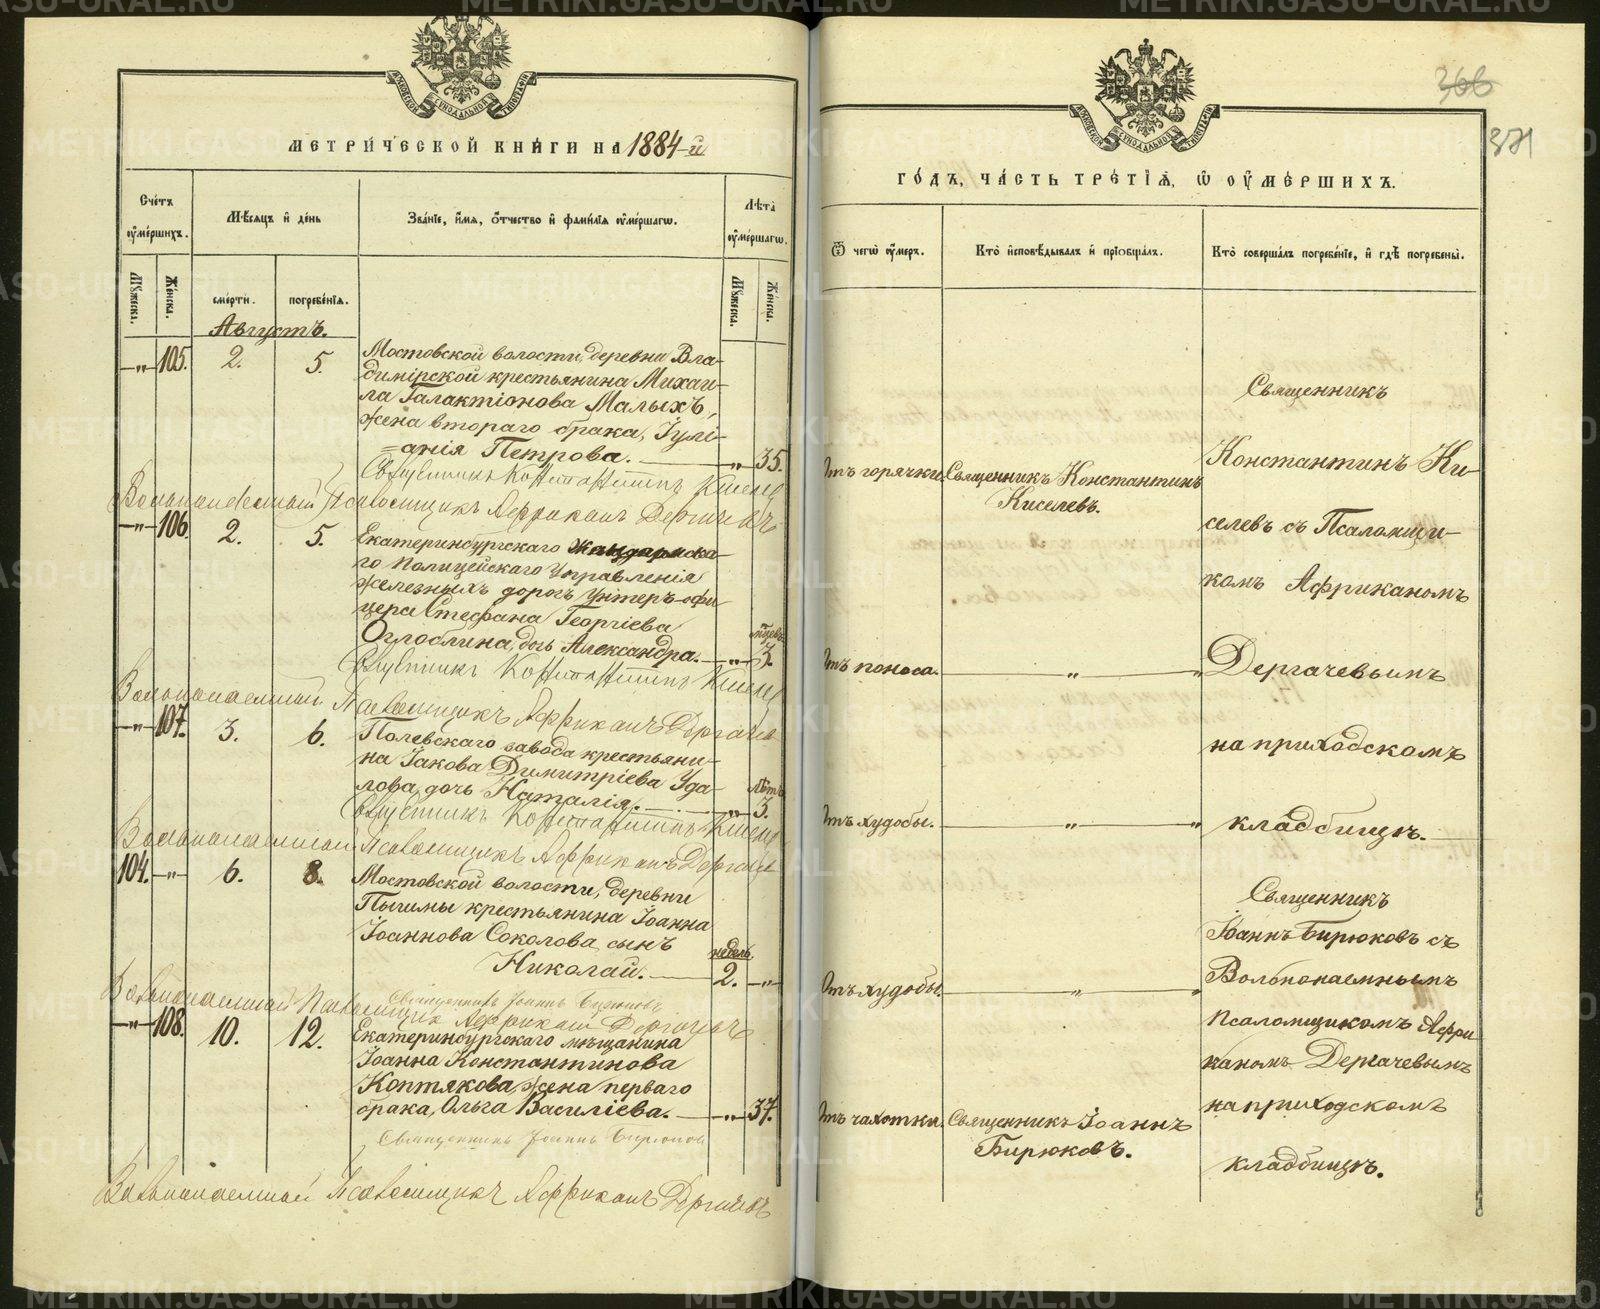 МЕТРИ́ЧЕСКОЙ КНИ́ГИ НА 1884-й
Сче́тъ
оу҆ме́ршихъ.
Мѣ́сяцъ и҆ де́нь
Зва́нїе, и҆́мя, ѻ҆́тчество и҆ фами́лїя оу҆ме́ршагѡ.
Лѣ́та
оу҆ме́ршагѡ.
Мꙋ́жеска.
Же́нска.
сме́рти.
погребе́нїя.
Мꙋ́жеска.
Же́нска.
Августъ.
—"— 105. 2. 5. Мостовской волости, деревни Вла-
димірской крестьянина Михаи-
ла Галактіонова Малыхъ,
жена втораго брака, Іулі-
=анія Петрова. — " — 35.
Священникъ Константинъ Киселев
Вольнонаемный Псаломщикъ Африканъ Дергачевъ
—"— 106. 2. 5. Екатеринбургскаго Жандармска-
го Полицейскаго Управленія
железныхъ дорогъ унтеръ-офи-
цера Стефана Георгіева
Оглоблина, дочь Александра. — " — мѣсяцев 3.
Священникъ Константинъ Киселев
Вольнонаемный Псаломщикъ Африканъ Дергачев
—"— 107. 3. 6. Полевскаго завода крестьяни-
на Іакова Димитріева Уда-
лова, дочь Наталія. — " — Лѣтъ 3.
Священникъ Константинъ Киселев
Вольнонаемный Псаломщикъ Африканъ Дергачев
104. —"— 6. 8. Мостовской волости, деревни
Пышмы крестьянина Іоанна
Іоаннова Соколова сынъ
Николай. — недель 2. —"—
Священникъ Іоаннъ Бирюковъ
Вольнонаемный Псаломщикъ Африканъ Дергачевъ
—"— 108. 10. 12. Екатеринбургскаго мѣщанина
Іоанна Константинова
Коптякова, жена перваго
брака, Ольга Василіева. — " — 37.
Священникъ Іоаннъ Бирюков
Вольнонаемный Псаломщикъ Африканъ Дергачевъ
366
371
ГО́ДЪ, ЧА́СТЬ ТРЕ́ТЇѦ, Ѡ҆ ОУ҆МЕ́РШИХЪ.
Ѿ чегѡ̀ оу҆́меръ.
Кто̀ и҆сповѣ́дывалъ и҆ прїѻбща́лъ.
Кто̀ соверша́лъ погребе́нїе, и҆ гдѣ̀ погребены̀.
Отъ горячки.
Священникъ Константинъ
Киселевъ.
Священникъ
Константинъ Ки-
селевъ съ Псаломщи-
комъ Африканомъ
Отъ поноса. — " — " Дергачевымъ
на приходскомъ
Отъ худобы. — " — " кладбищѣ.
Священникъ
Іоаннъ Бирюковъ съ
Отъ худобы. — " — Вольнонаемнымъ
псаломщикомъ Афри
каномъ Дергачевымъ
Отъ чахотки. Священникъ Іоаннъ
Бирюковъ.
на приходскомъ
кладбищѣ.
METRIKI.GASO-URAL.RU